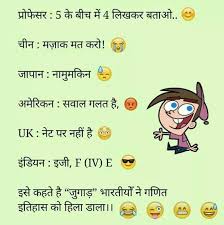 प्रोफेसर : 5 के बीच में 4 लिखकर बताओ.. 😊
चीन : मज़ाक मत करो! 😭
जापान : नामुमकिन 😓
अमेरिकन : सवाल गलत है, 😡
UK : नेट पर नहीं है 😓
इंडियन : इजी, F (IV) E 😎
इसे कहते है “जुगाड़” भारतीयों ने गणित
इतिहास को हिला डाला।। 😂😜😁😅